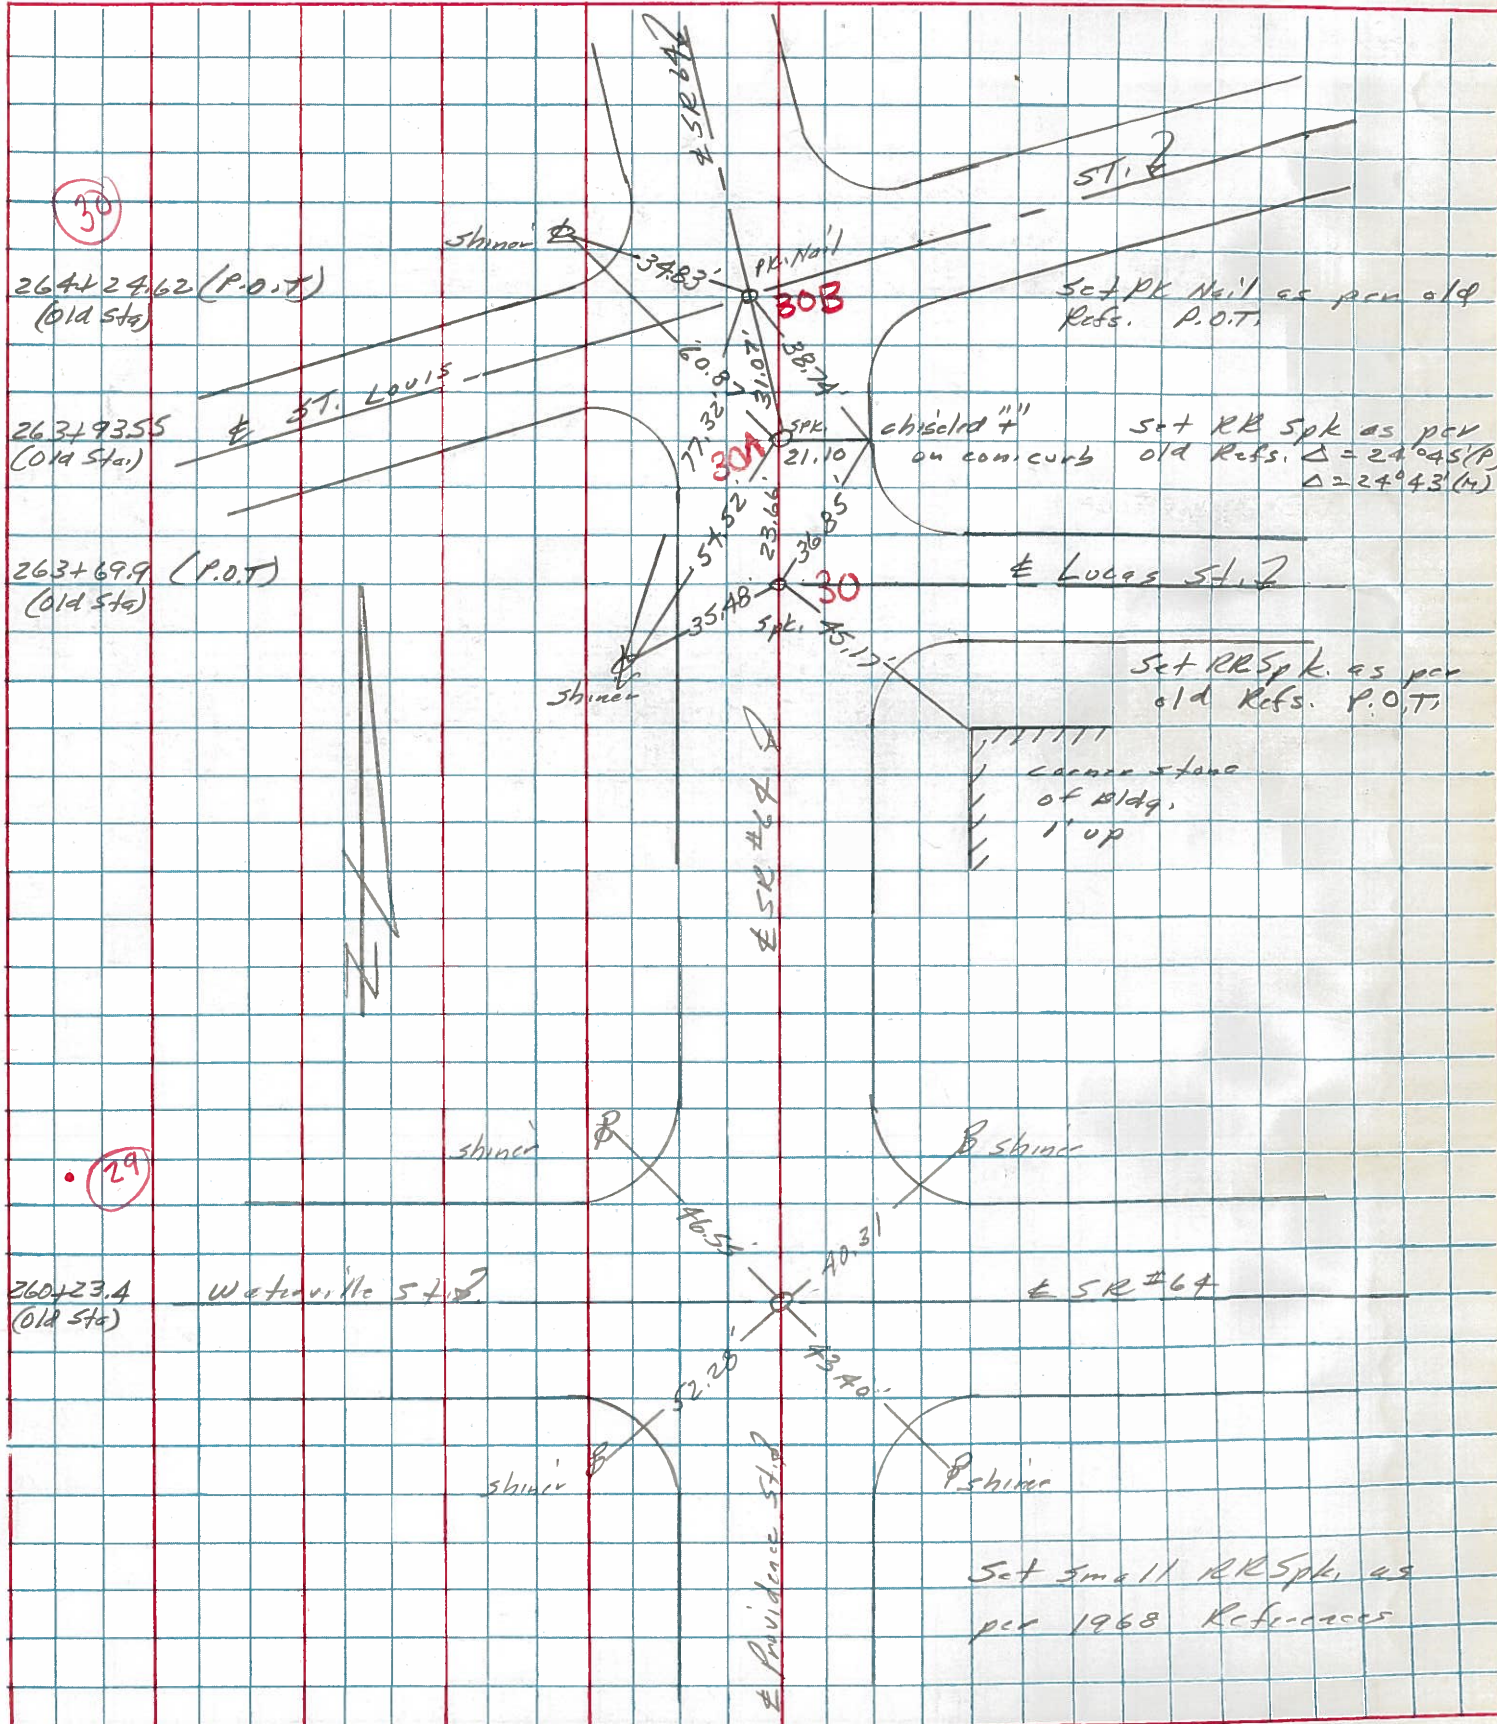 ℄ SR 64
ST. ℄
30
shiner
34.83'
PK. Nail
264+24.62 (P.O.T)
(Old Sta)
30B
Set PK Nail as per old
Refs. P.O.T.
60.87
31.07'
38.74'
℄ ST. LOUIS
77.32'
263+93.55
(Old Sta.)
30A
SPK.
21.10
chiseled "+"
on conc. curb
Set RR Spk as per
old Refs. Δ = 24°45'(P)
Δ = 24°43'(M)
54.52'
23.66'
36.85
263+69.9 (P.O.T)
(Old Sta)
℄ Lucas St.
30
35.48'
Spk.
45.17'
shiner
Set RR Spk. as per
old Refs. P.O.T.
corner stone
of Bldg.
1' up
℄ SR #64
N
shiner
shiner
29
46.55'
40.31
260+23.4
(Old Sta)
Waterville St. ℄
℄ SR #64
52.28'
43.40'
shiner
shiner
℄ Providence St.
Set small RR Spk. as
per 1968 References